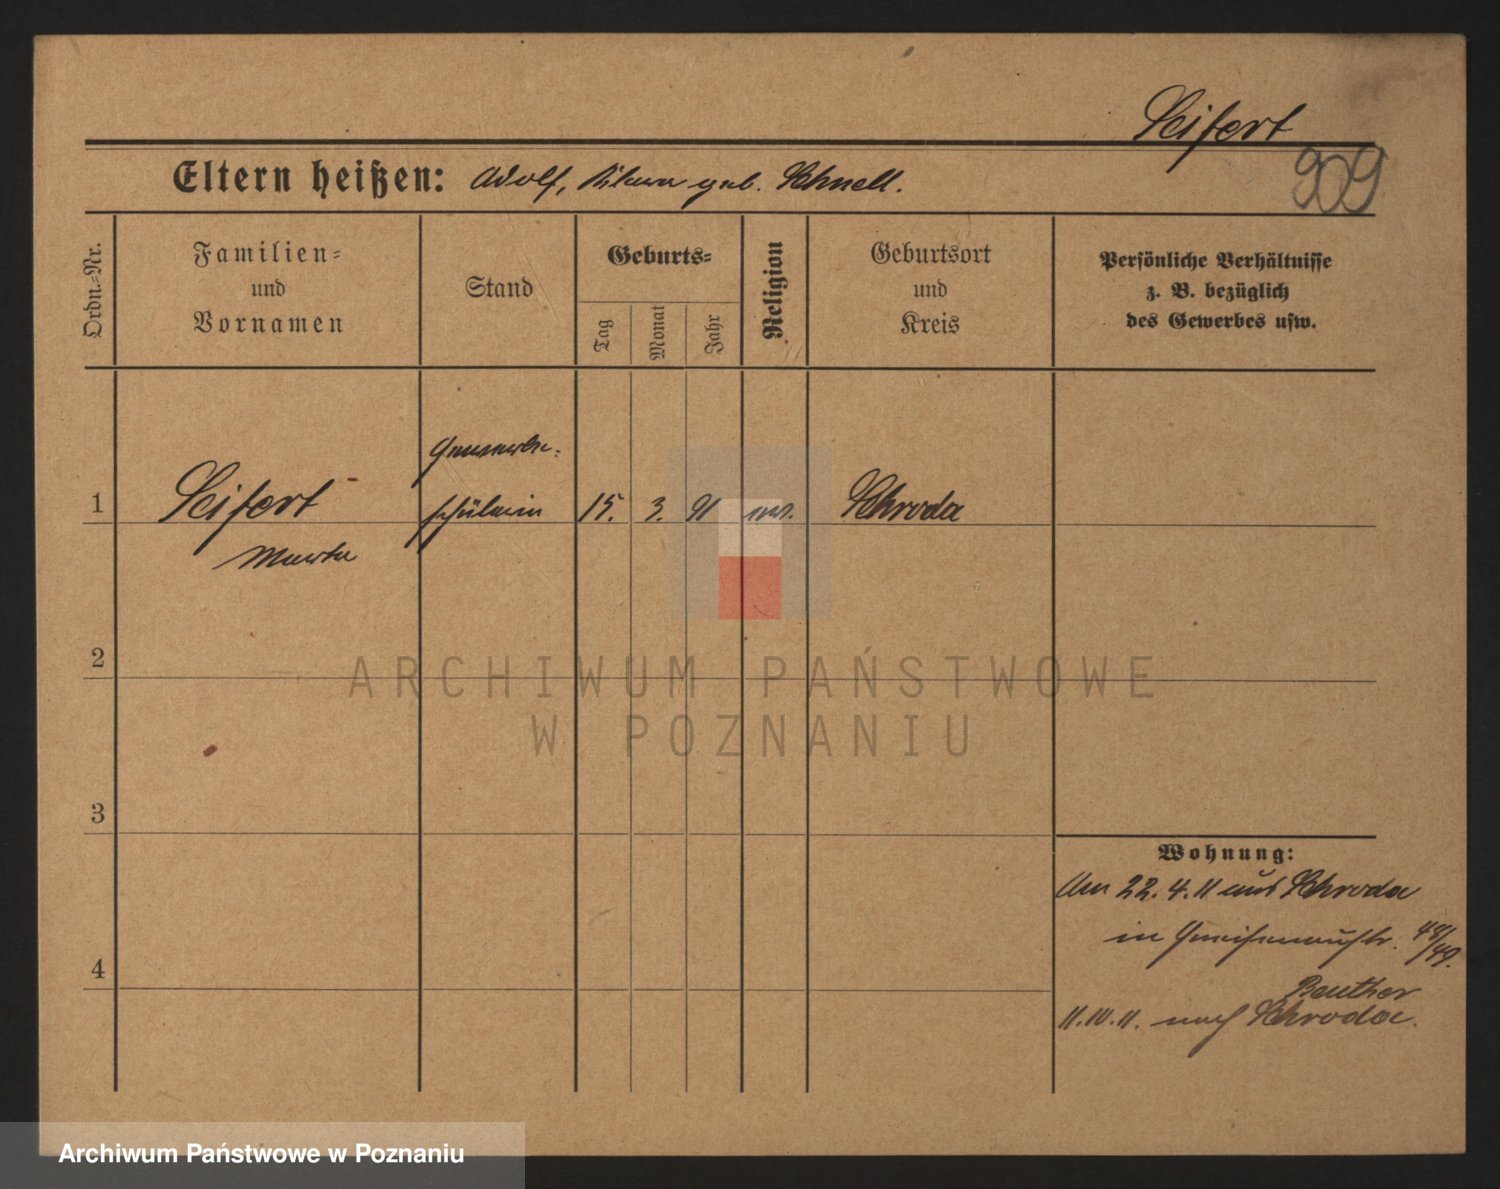 Seifert
909
Eltern heißen: Adolf, geb. Schnell.
Ordn.-Nr.
Familien-
und
Vornamen
Stand
Geburts-
Tag
Monat
Jahr
Religion
Geburtsort
und
Kreis
Persönliche Verhältnisse
z. B. bezüglich
des Gewerbes usw.
Gewerbe-
1 Seifert schülerin 15. 3. 91 Schroda
Martha
2
3
4
Wohnung:
Am 22.4.11 aus Schroda
in Gneisenaustr. 48/49.
Beuther
11.10.11. nach Schroda.
ARCHIWUM PAŃSTWOWE
W POZNANIU
Archiwum Państwowe w Poznaniu